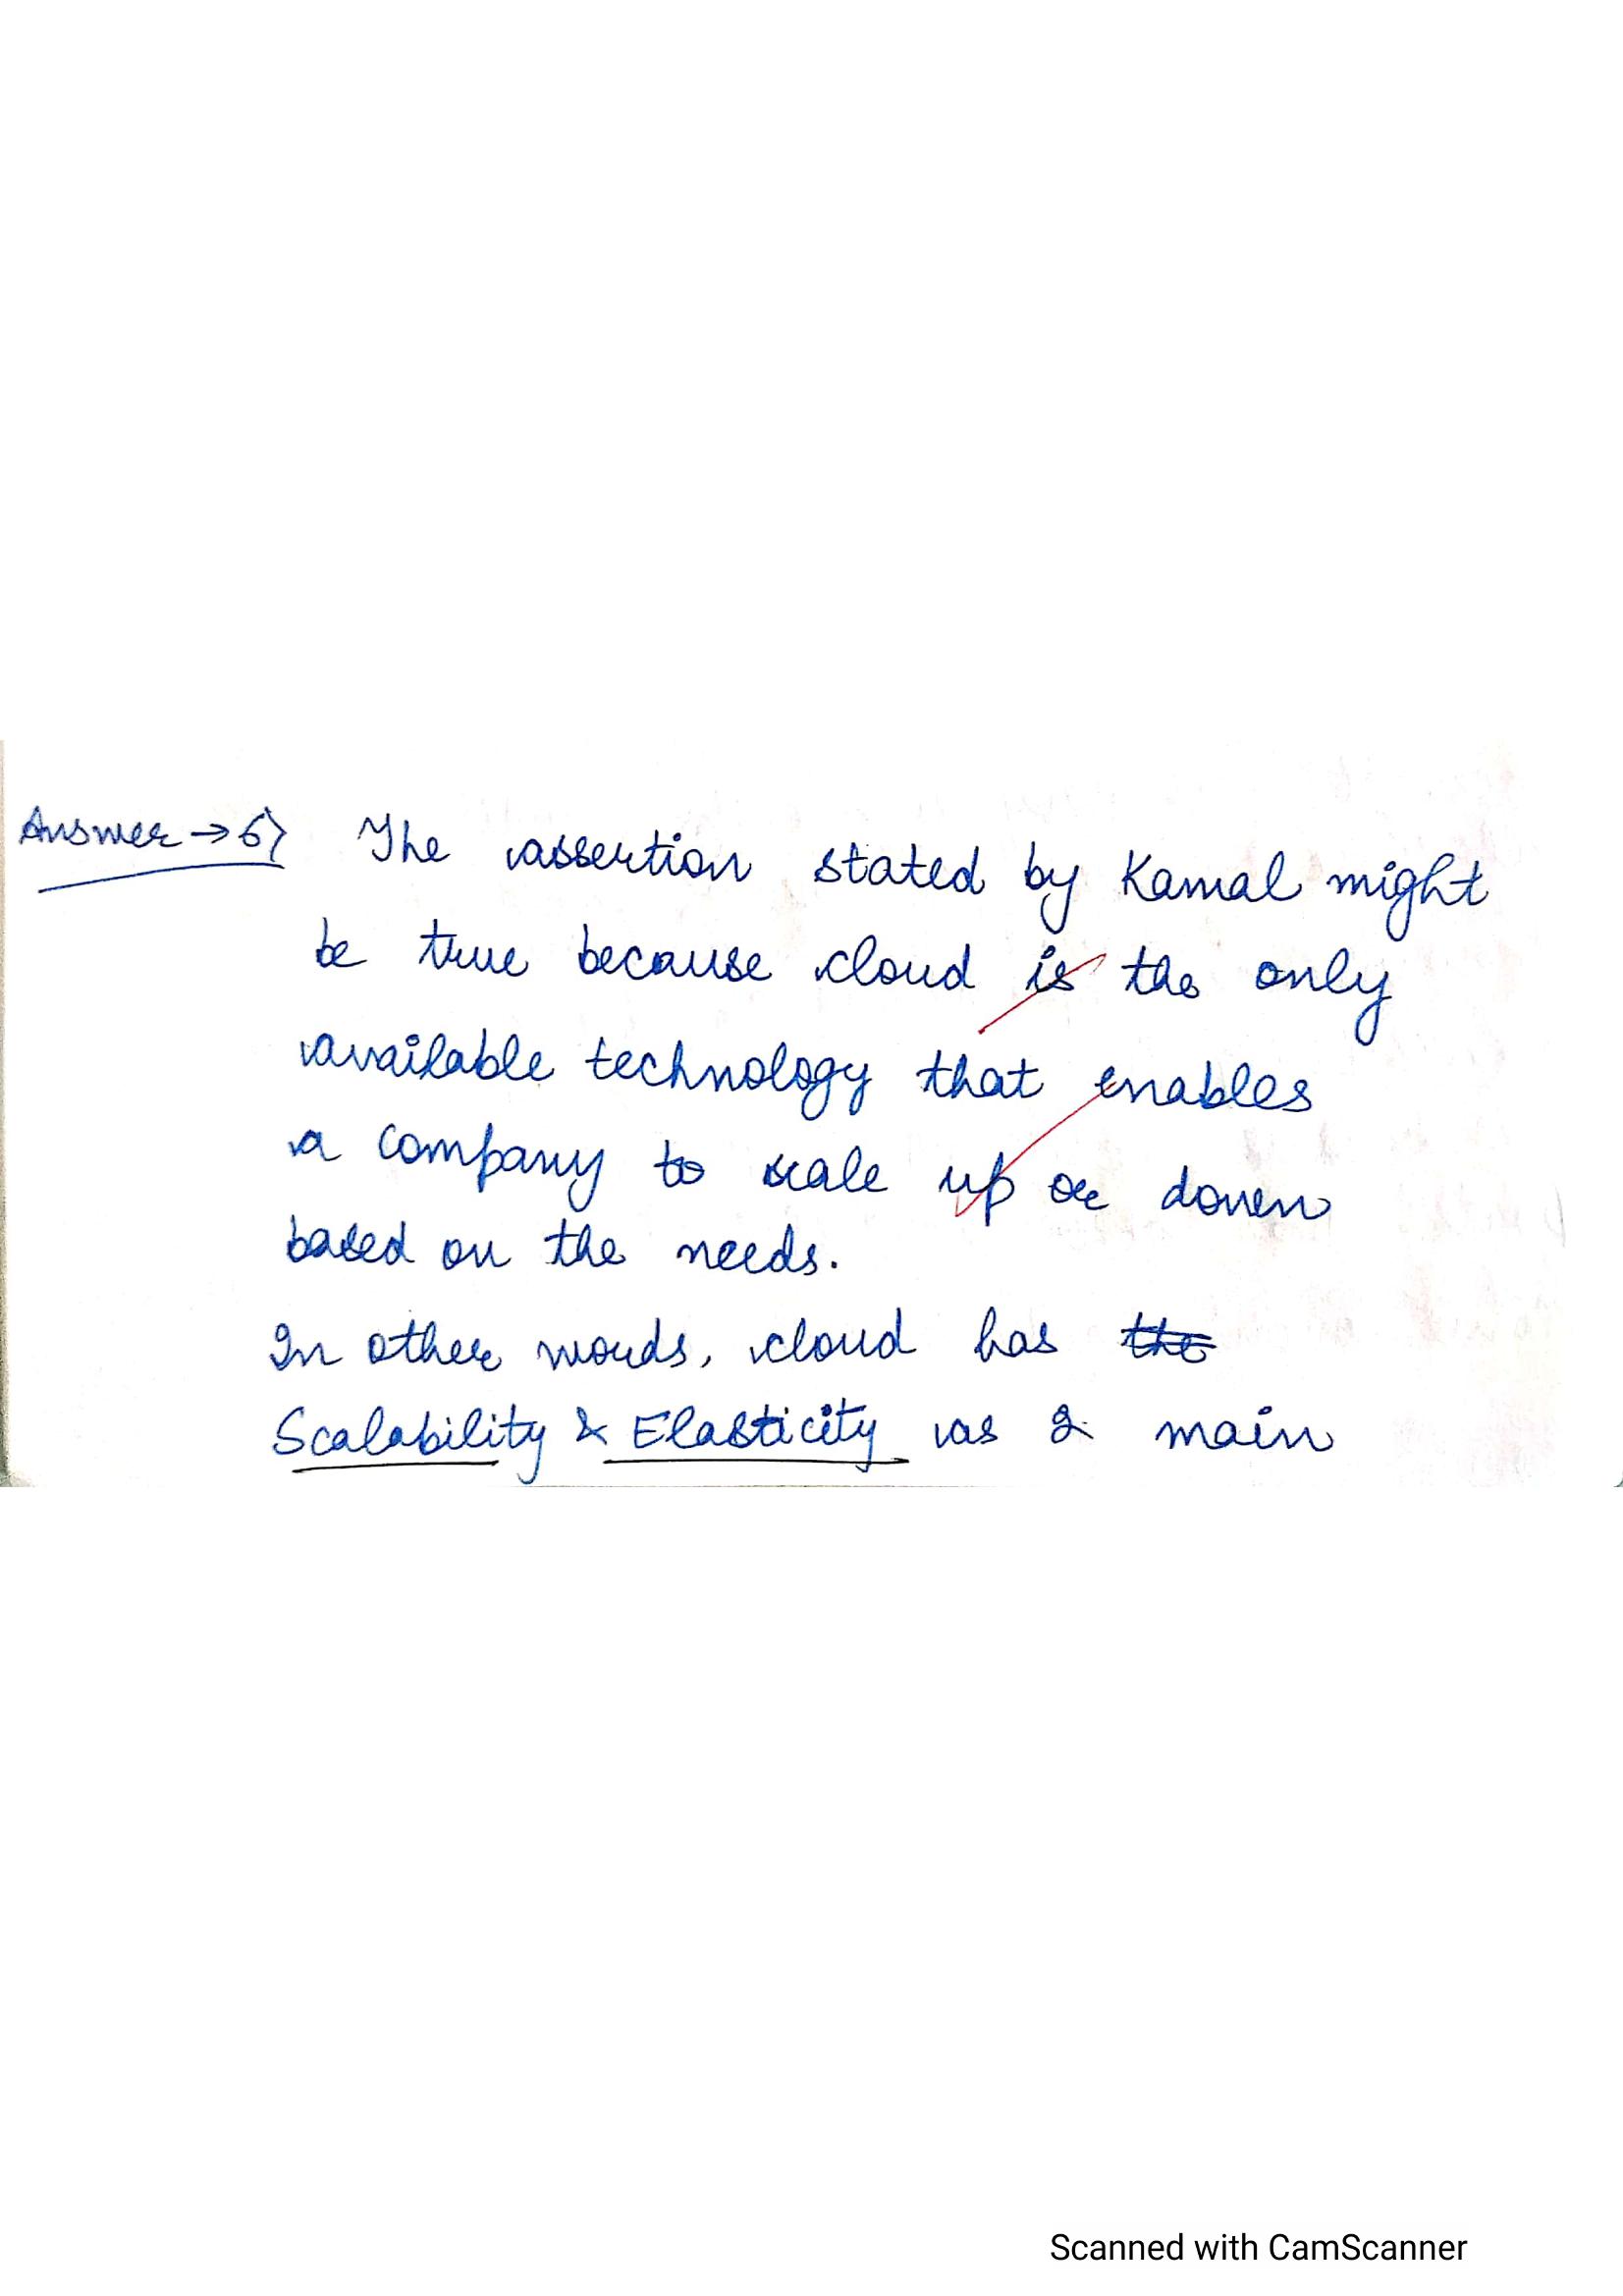 Answer → 6) The assertion stated by Kamal might
be true because cloud is the only
available technology that enables
a company to scale up or down
based on the needs.
In other words, cloud has the
Scalability & Elasticity as 2 main
Scanned with CamScanner